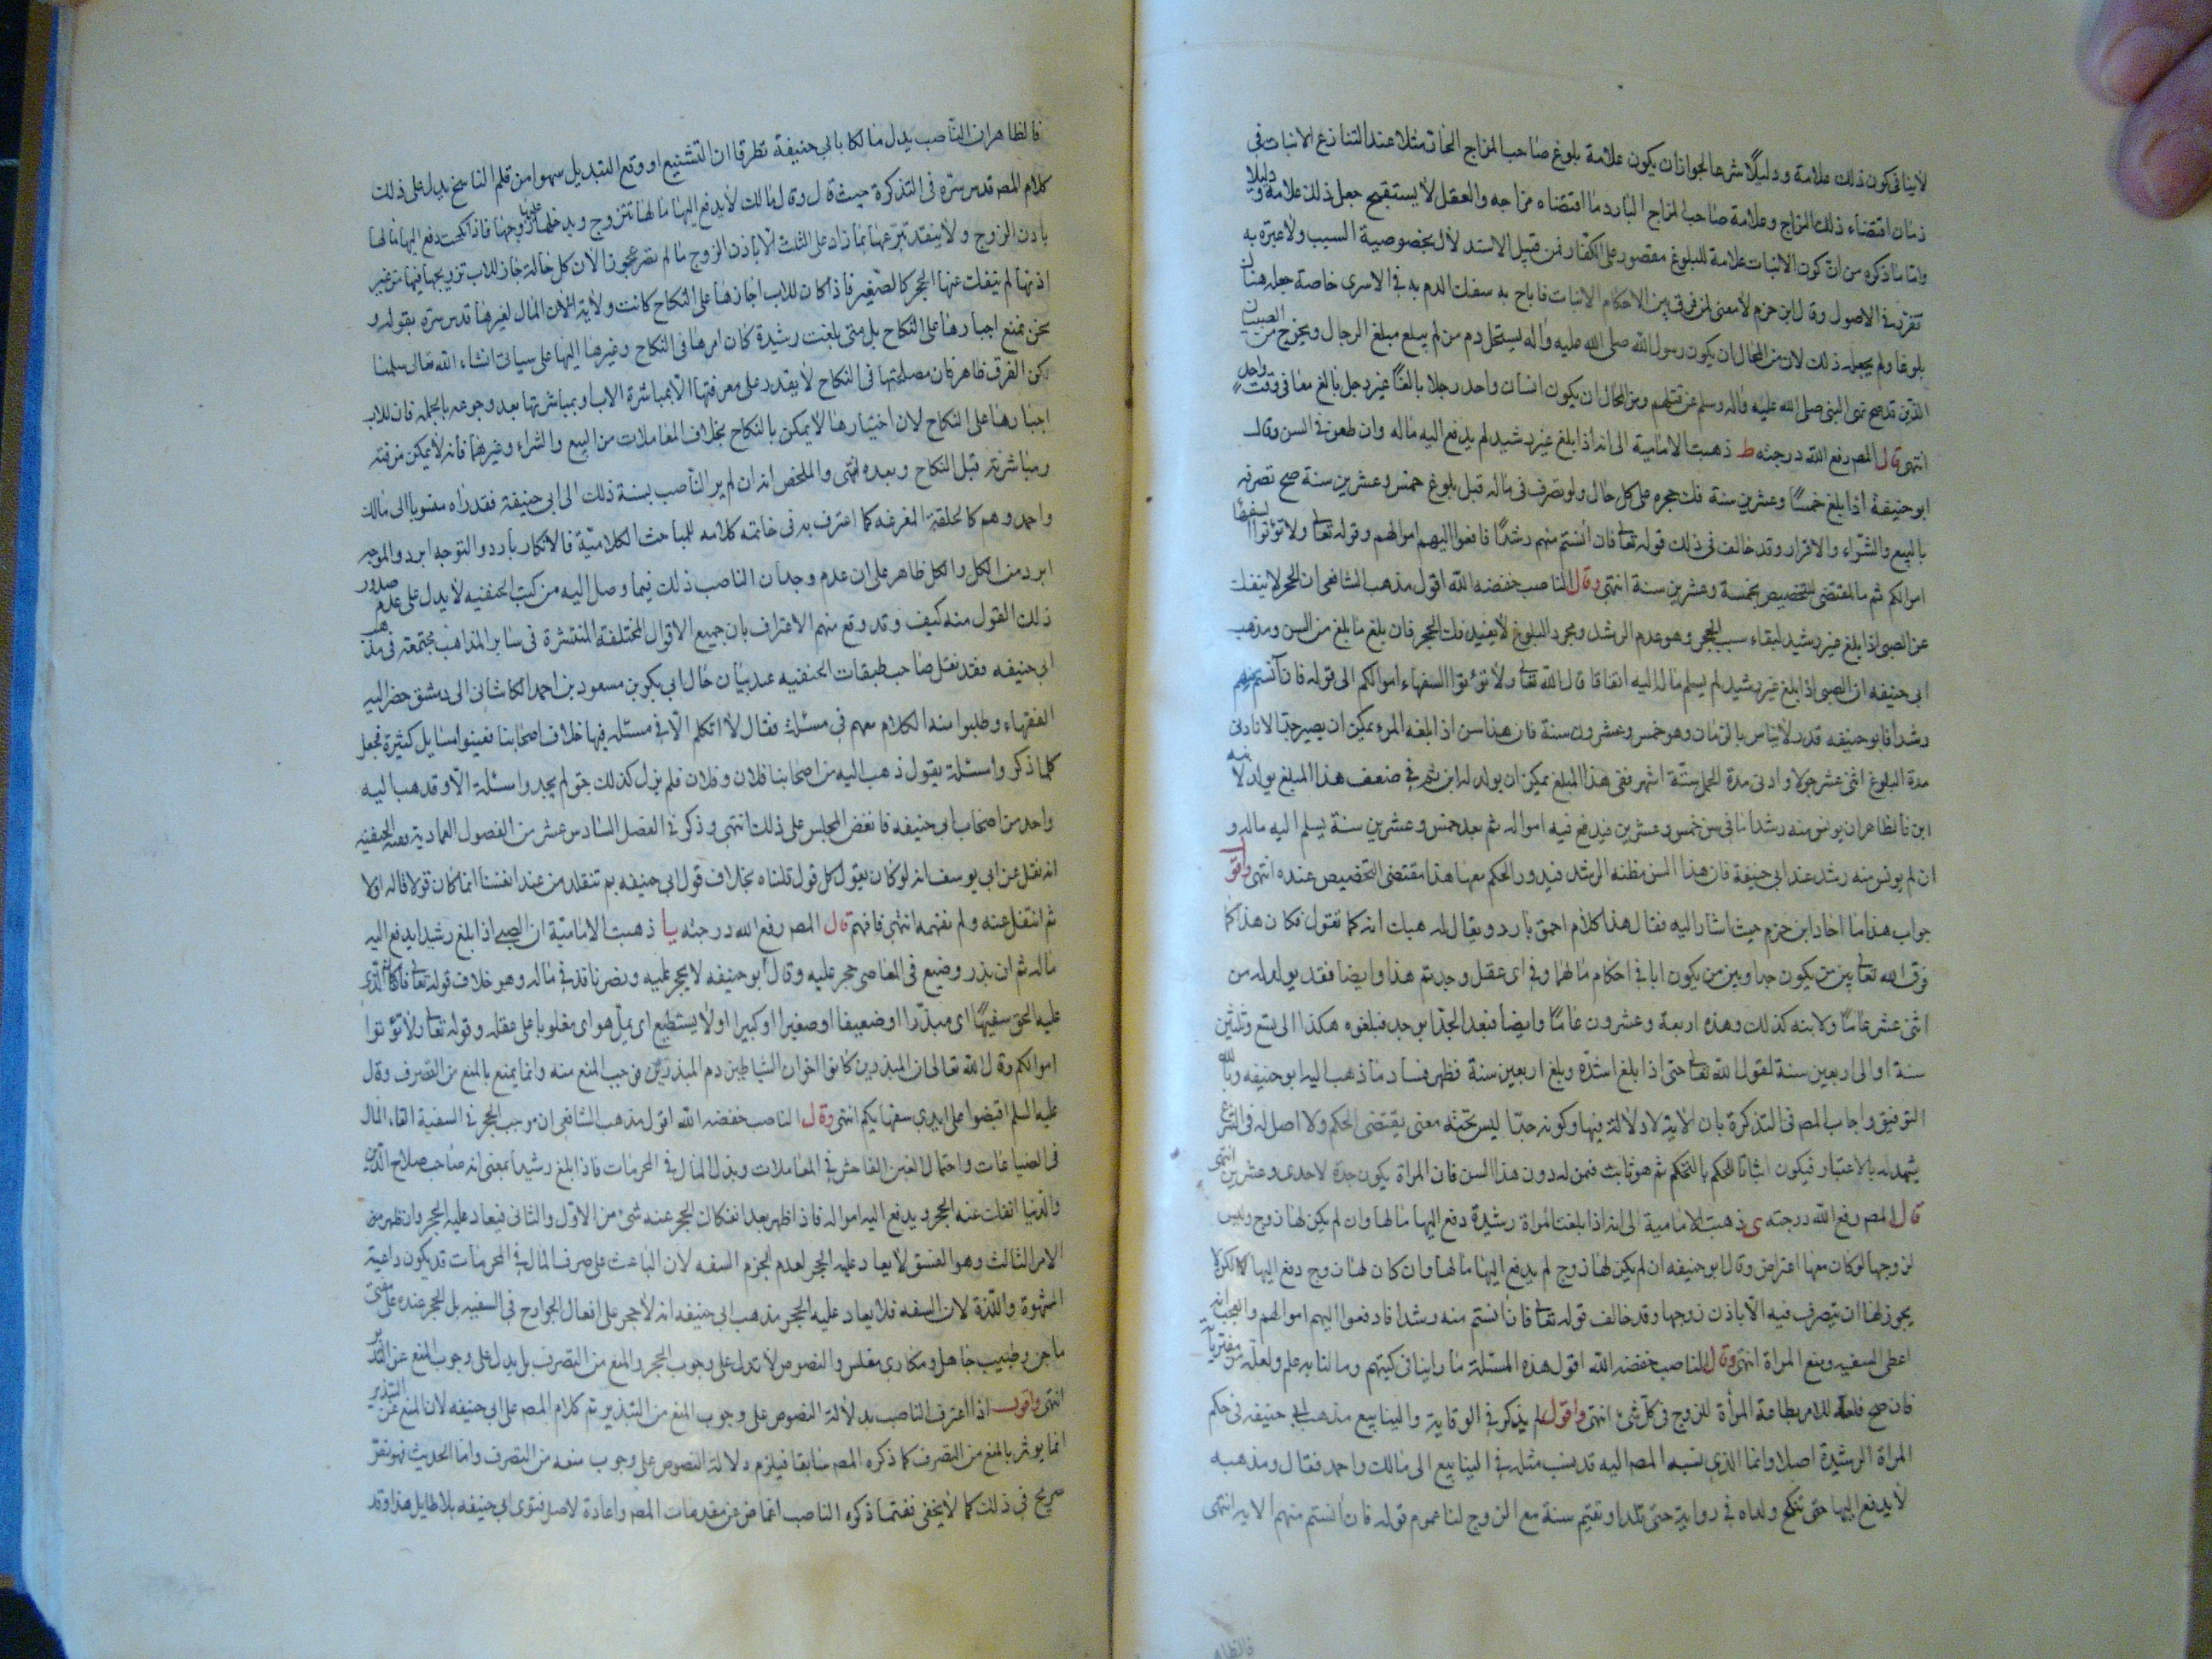 لاينافى كون ذلك علامة ودليلًا شرعا لجواز ان يكون علامة بلوغ صاحب المزاج الحار مثلا عند التنازع الانبات فى
زمان اقتضاء ذلك المزاج وعلامة صاحب المزاج البارد ما اقتضاه مزاجه والعقل لا يستقبح جعل ذلك علامة ودليلا
واما ما ذكره من ان كون الانبات علامة للبلوغ مقصور على الكفار فمن قبيل الاستدلال بخصوصية السبب ولا عبرة به
تقرر فى الاصول وقال ابن حزم لا معنى لمن فرق بين الاحكام الانبات فاباح به سفك الدم به فى الاسرى خاصة جعله هناك
بلوغا ولم يجعله ذلك لان من المحال ان يكون رسول الله صلى الله عليه واله يستحل دم من لم يبلغ مبلغ الرجال ويخرج من الصبيان
الذين قد صح نهى النبى صلى الله عليه واله وسلم عن قتلهم ومن المحال ان يكون انسان واحد رجلا بالغًا غير رجل بالغ معا فى وقت واحد
انتهى قال المصر رفع الله درجته ط ذهبت الامامية الى انه اذا بلغ غير رشيد لم يدفع اليه ماله وان طعن فى السن وقال
ابوحنيفة اذا بلغ خمسًا وعشرين سنة فك حجره على كل حال ولو تصرف فى ماله قبل بلوغ خمس وعشرين سنة صح تصرفه
بالبيع والشراء والاقرار وقد خالف فى ذلك قوله تعالى فان انستم منهم رشدًا فادفعوا اليهم اموالهم وقوله تعالى ولا تؤتوا السفهاء
اموالكم ثم ما المقتضى لتخصيص بخمسة وعشرين سنة انتهى وقال الناصب خفضه الله اقول مذهب الشافعى ان الحجر لا ينفك
عن الصبى اذا بلغ غير رشيد لبقاء سبب الحجر وهو عدم الرشد ومجرد البلوغ لا يفيد فك الحجر فان بلغ ما بلغ من السن ومذهب
ابى حنيفه ان الصبى اذا بلغ غير رشيد لم يسلم ماله اليه اتفاقا قال الله تعالى ولا تؤتوا السفهاء اموالكم الى قوله فان آنستم منهم
رشدا فابوحنيفه قدر الايناس بالزمان وهو خمس وعشرون سنة فان هذا سن اذا بلغه المرء يمكن ان يصير جدا لان ادنى
مدة البلوغ اثنى عشر حولا وادنى مدة الحمل ستة اشهر ففى هذا المبلغ يمكن ان يولد له ابن ثم فى ضعف هذا المبلغ يولد لابنه
ابن فالظاهر ان يونس منه رشدا ما فى سن خمس وعشرين فيدفع فيه امواله ثم بعد خمس وعشرين سنة يسلم اليه ماله و
ان لم يونس منه رشد عند ابى حنيفة فان هذا السن مظنه الرشد فيدور الحكم معها هذا مقتضى التخصيص عنده انتهى واقول
جواب هذا ما افاد ابن حزم حيث اشار اليه فقال هذا كلام احمق بارد ويقال له هبك انه كما تقول فكان هذا كما
فرق الله تعالى بين من يكون جدا وبين من يكون ابا فى احكام مالهما وفى اى عقل وجدتم هذا وايضا فقد يولد له من
اثنى عشر عامًا ولابنه كذلك وهذه اربعة وعشرون عامًا وايضا فبعد الجد ابو جد فبلغوه هكذا الى تسع وثلثين
سنة او الى اربعين سنة لقول الله تعالى حتى اذا بلغ اشده وبلغ اربعين سنة فظهر فساد ما ذهب اليه ابوحنيفه وبالله
التوفيق واجاب المصر فى التذكرة بان الاية لا دلالة فيها وكونه جدا ليس تحته معنى يقتضى الحكم ولا اصل له فى الشرع
يشهد له بالاعتبار فيكون اثباتا للحكم بالتحكم ثم هو ثابت فمن له دون هذا السن فان المراة يكون جدة لاحدى وعشرين انتهى
قال المصر رفع الله درجته ى ذهبت الامامية الى انه اذا بلغت المراة رشيدة دفع اليها مالها وان لم يكن لها زوج وليس
لزوجها لو كان معها اعتراض وقال ابوحنيفه ان لم يكن لها زوج لم يدفع اليها مالها وان كان لها زوج دفع اليها لكن لا
يجوز لها ان يتصرف فيه الا باذن زوجها وقد خالف قوله تعالى فان انستم منه رشدا فادفعوا اليهم اموالهم والعجب انه
اعطى السفيه ومنع المراة انتهى وقال الناصب خفضه الله اقول هذه المسئلة ما راينا فى كتبهم ومالنا به علم ولعله من مفترياته
فان صح فلعله للامر بطاعة المرأة للزوج فى كل شئ انتهى واقول لم يذكر فى الوقاية والينابيع مذهب ابى حنيفه فى حكم
المراة الرشيدة اصلا وانما الذى نسبه المصر اليه قد نسب مثله فى الينابيع الى مالك واحمد فقال ومذهبه
لا يدفع اليها حتى تنكح ولداه فى رواية حتى تلد او تقيم سنة مع الزوج لنا عموم قوله فان انستم منهم الاية انتهى
فالظاهر
فالظاهر ان الناصب بدل مالكا بابى حنيفة تطرقا ان التشنيع او وقع التبديل سهوا من قلم الناسخ يدل على ذلك
كلام المصر قدس سره فى التذكرة حيث قال وقال مالك لا يدفع اليها مالها حتى تتزوج ويدخل عليها زوجها فاذا نكحت دفع اليها مالها
باذن الزوج ولا ينفذ تبرعها بما زاد على الثلث الا باذن الزوج ما لم تصر عجوزا لان كل حالة جاز للاب تزويجها فيها من غير
اذنها لم ينفك عنها الحجر كالصغير فاذا كان للاب اجبارها على النكاح كانت ولاية المال لغيرها قدس سره بقوله و
نحن نمنع اجبارها على النكاح بل متى بلغت رشيدة كان امرها فى النكاح وغيرها اليها على سياتى انشاء الله تعالى سلمنا
لكن الفرق ظاهر فان مصلحتها فى النكاح لا يقدر على معرفتها الا بمباشرة الاب وبمباشرتها بعد وجوعه بالجمله فان للاب
اجبارها على النكاح لان اختيارها لا يمكن بالنكاح بخلاف المعاملات من البيع والشراء وغيرهما فانه لا يمكن معرفته
ومباشرته قبل النكاح وبعده انتهى والملخص انه ان لم ير الناصب نسبة ذلك الى ابى حنيفة فقد راه منسوبا الى مالك
واحمد وهم كالحلقة المفرغه كما اعترف به فى خاتمه كلامه للمباحث الكلامية فالانكار بارد والتوجه ابرد والموجه
ابرد من الكل والكل ظاهر على ان عدم وجدان الناصب ذلك فيما وصل اليه من كتب الحنفيه لا يدل على عدم صدور
ذلك القول منه كيف وقد وقع منهم الاعتراف بان جميع الاقوال المختلفة المنتشرة فى ساير المذاهب مجتمعة فى مذهب
ابى حنيفه فقد نقل صاحب طبقات الحنفيه عند بيان حال ابى بكر بن مسعود بن احمد الكاشانى الى دمشق حضر اليه
الفقهاء وطلبوا منه الكلام معهم فى مسئلة فقال لا اتكلم الا فى مسئله فيها خلاف اصحابنا فعينوا مسايل كثيرة فجعل
كلما ذكروا مسئلة يقول ذهب اليه من اصحابنا فلان وفلان فلم يزل كذلك حتى لم يجدوا مسئلة الا وقد ذهب اليه
واحد من اصحاب ابى حنيفه فانفض المجلس على ذلك انتهى وذكر فى الفصل السادس عشر من الفصول العمادية فى فقه الحنفيه
انه نقل عن ابى يوسف انه لو كان يقول كل قول قلناه بخلاف قول ابى حنيفه لم نتقلد من عند انفسنا انما كان قولا قاله اولا
ثم انتقل عنه ولم نفهمه انتهى فافهم قال المصر رفع الله درجته يا ذهبت الامامية ان الصبى اذا بلغ رشيدا يدفع اليه
ماله ثم ان بذر وضيع فى المعاصى حجر عليه وقال ابوحنيفه لا يحجر عليه وتصرفه نافذ فى ماله وهو خلاف قوله تعالى فان كان الذى
عليه الحق سفيهًا اى مبذرا او ضعيفا او صغيرا او كبيرا او لا يستطيع ان يمل هو اى مغلوبا على عقله وقوله تعالى ولا تؤتوا
اموالكم وقال الله تعالى ان المبذرين كانوا اخوان الشياطين ذم المبذرين فوجب المنع منه وانما يمنع بالمنع من التصرف وقال
عليه السلم اقبضوا على ايدى سفهايكم انتهى وقال الناصب خفضه الله اقول مذهب الشافعى ان موجب الحجر فى السفيه القاء المال
فى الضياعات واحتمال الغبن الفاحش فى المعاملات وبذل المال فى المحرمات فاذا بلغ رشيدا بمعنى انه صاحب صلاح الدين
والدنيا انفك عنه الحجر ويدفع اليه امواله فاذا ظهر بعد انفكاك الحجر عنه شئ من الاول والثانى فيعاد عليه الحجر وان ظهر من
الامر الثالث وهو الفسق لا يعاد عليه الحجر لعدم الجزم السفه لان الباعث على صرف المال فى المحرمات قد يكون داعية
الشهوة واللذة لان السفه فلا يعاد عليه الحجر مذهب ابى حنيفه انه لا حجر على افعال الجوارح فى السفيه بل الحجر عنده على مفتى
ماجن وطبيب جاهل ومكارى مفلس والنصوص لا تدل على وجوب الحجر والمنع من التصرف بل يدل على وجوب المنع عن التبذير
انتهى واقول اذا اعترف الناصب بدلالة النصوص على وجوب المنع من التبذير تم كلام المصر على ابى حنيفه لان المنع عن التبذير
انما يوثر بالمنع من التصرف كما ذكره المصر سابقا فيلزم دلالة النصوص على وجوب منعه من التصرف واما الحديث فهو نص
صريح فى ذلك كما لا يخفى فقتما ذكره الناصب اغماض عن مقدمات المصر واعادة لاصل فتوى ابى حنيفه بلا طايل هذا وقد